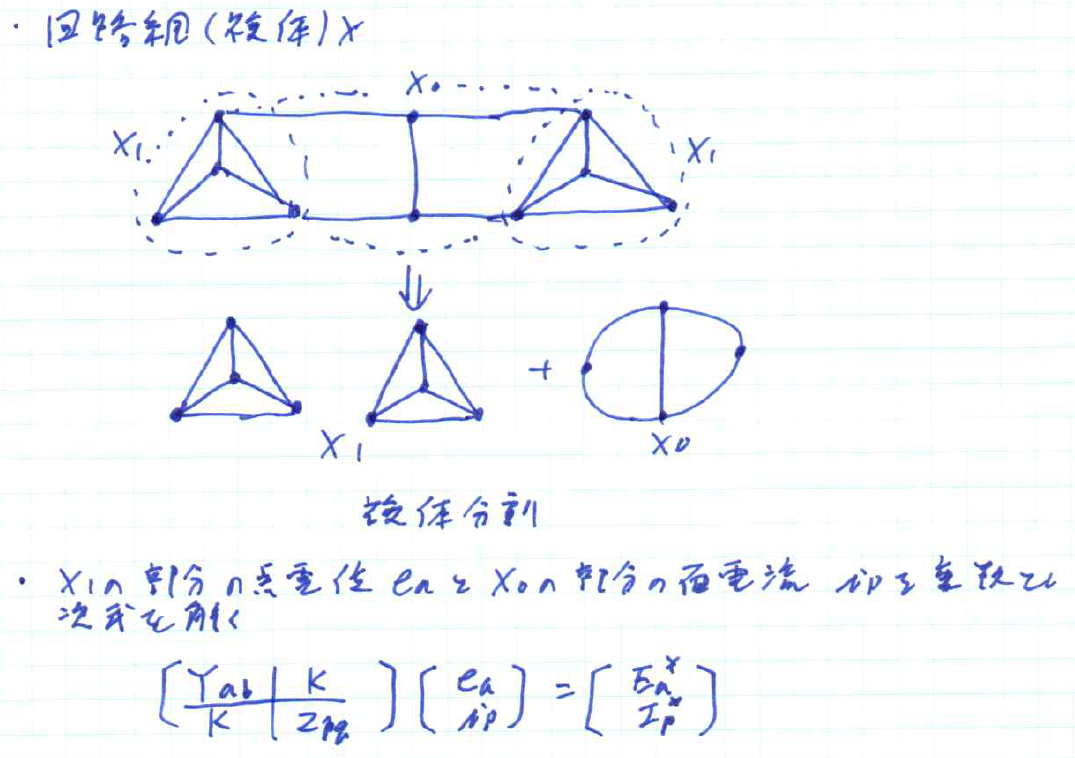 ・回路網(複体)X
X0
X1
X1
+
X1
X0
複体分割
・X1の部分の点電位 ea と X0の部分の面電流 ipを変数とし
次式を解く
[Yab | K / K | Zpq] [ea / ip] = [Ea* / Ip*]